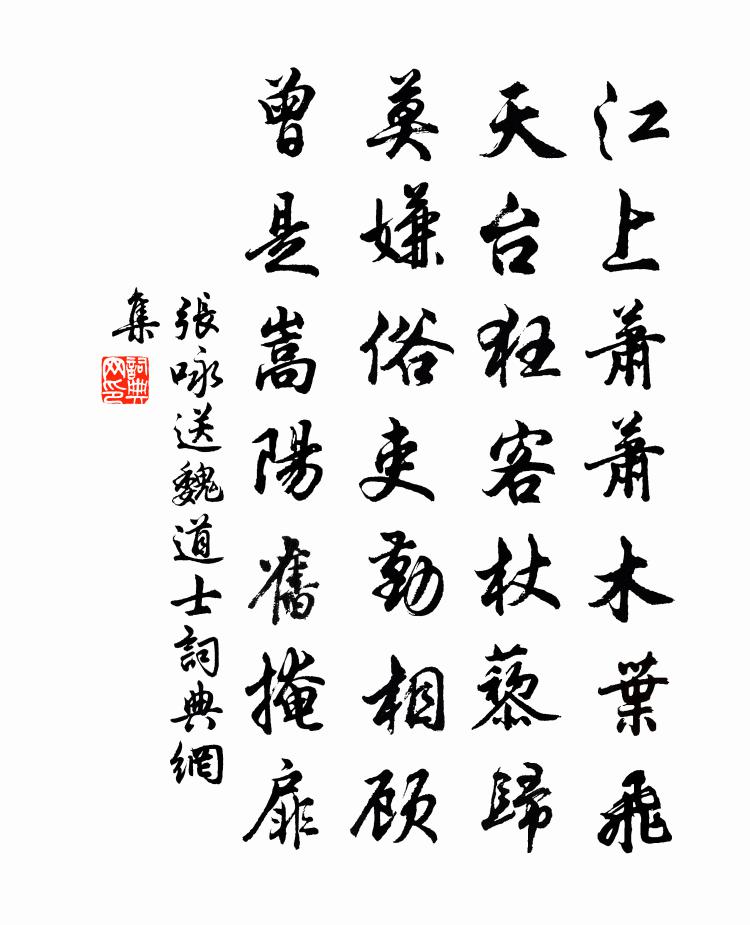 江上蕭蕭木葉飛
天台狂客杖藜歸
莫嫌俗吏勤相顾
曾是嵩陽舊掩扉
張咏送魏道士詞典網
集
詞典
网印